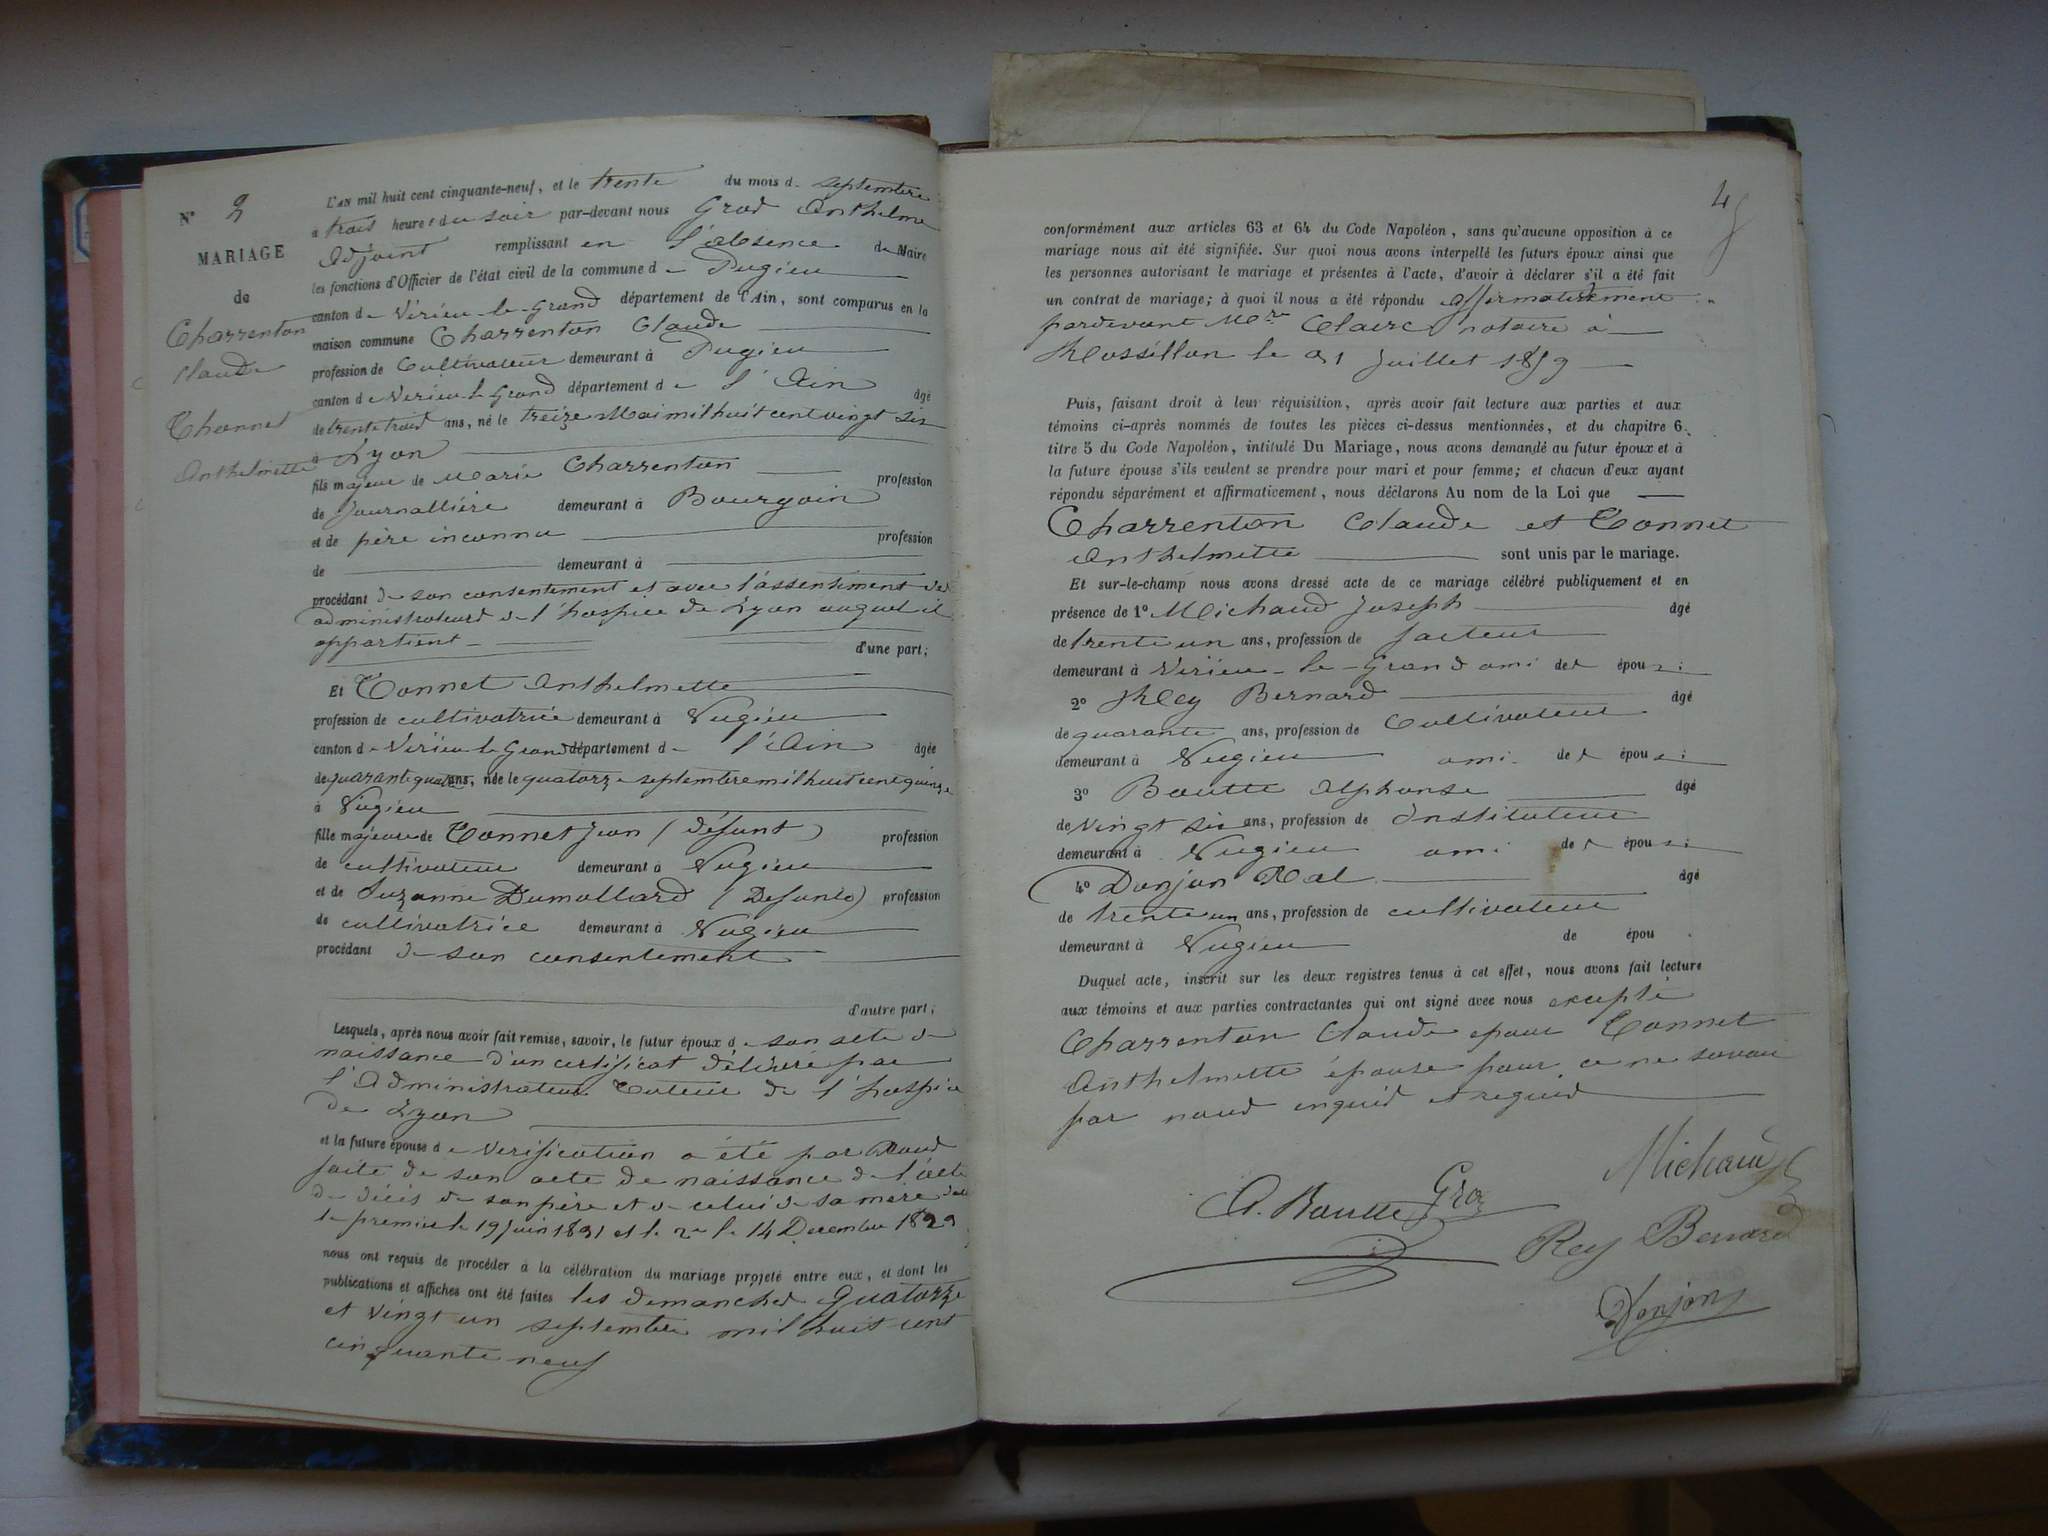 N° 2
MARIAGE
de
Charrenton
Claude
Thonnet
Anthelmette
L'AN mil huit cent cinquante-neuf, et le trente du mois d septembre
à trois heures du soir par-devant nous Groz Anthelme
Adjoint remplissant en l'absence du Maire
les fonctions d'Officier de l'état civil de la commune de Pugieu
canton de Virieu-le-Grand département de l'Ain, sont comparus en la
maison commune Charrenton Claude
profession de Cultivateur demeurant à Pugieu
canton de Virieu le Grand département de l'Ain âgé
de trente trois ans, né le treize Mai mil huit cent vingt six
à Lyon
fils majeur de Marie Charrenton profession
de journallière demeurant à Bourgoin
et de père inconnu profession
de demeurant à
procédant de son consentement et avec l'assentiment des
administrateurs de l'hospice de Lyon auquel il
appartient d'une part;
Et Tonnet Anthelmette
profession de cultivatrice demeurant à Pugieu
canton de Virieu le Grand département de l'Ain âgée
de quarante quatre ans, née le quatorze septembre mil huit cent quinze
à Pugieu
fille majeure de Tonnet Jean (défunt) profession
de cultivateur demeurant à Pugieu
et de Suzanne Dumollard (Defunte) profession
de cultivatrice demeurant à Pugieu
procédant de son consentement
d'autre part;
Lesquels, après nous avoir fait remise, savoir, le futur époux de son acte de
naissance d'un certificat délivré par
l'Administrateur Tuteur de l'hospice
de Lyon
et la future épouse de verification a été par nous
faite de son acte de naissance de l'acte
de décès de son père et de celui de sa mère
le premier le 19 juin 1831 et le 2e le 14 Decembre 1829
nous ont requis de procéder à la célébration du mariage projeté entre eux, et dont les
publications et affiches ont été faites les dimanches quatorze
et vingt un septembre mil huit cent
cinquante neuf
4
conformément aux articles 63 et 64 du Code Napoléon, sans qu'aucune opposition à ce
mariage nous ait été signifiée. Sur quoi nous avons interpellé les futurs époux ainsi que
les personnes autorisant le mariage et présentes à l'acte, d'avoir à déclarer s'il a été fait
un contrat de mariage; à quoi il nous a été répondu affirmativement
pardevant Me Clerc notaire à
Rossillon le 31 juillet 1859
Puis, faisant droit à leur réquisition, après avoir fait lecture aux parties et aux
témoins ci-après nommés de toutes les pièces ci-dessus mentionnées, et du chapitre 6,
titre 5 du Code Napoléon, intitulé Du Mariage, nous avons demandé au futur époux et à
la future épouse s'ils veulent se prendre pour mari et pour femme; et chacun d'eux ayant
répondu séparément et affirmativement, nous déclarons Au nom de la Loi que
Charrenton Claude et Tonnet
Anthelmette sont unis par le mariage.
Et sur-le-champ nous avons dressé acte de ce mariage célébré publiquement et en
présence de 1° Michaud Joseph âgé
de trente un ans, profession de facteur
demeurant à Virieu-le-Grand ami des époux;
2° Rey Bernard âgé
de quarante ans, profession de Cultivateur
demeurant à Pugieu ami des époux;
3° Boutte Alphonse âgé
de vingt six ans, profession de Instituteur
demeurant à Pugieu ami des époux;
4° Donjon âgé
de trente un ans, profession de cultivateur
demeurant à Pugieu de épou
Duquel acte, inscrit sur les deux registres tenus à cet effet, nous avons fait lecture
aux témoins et aux parties contractantes qui ont signé avec nous excepté
Charrenton Claude epoux Tonnet
Anthelmette épouse pour ce ne savoir
par nous enquis et requis
Michaud
A. Boutte Groz
Rey Bernard
Donjon